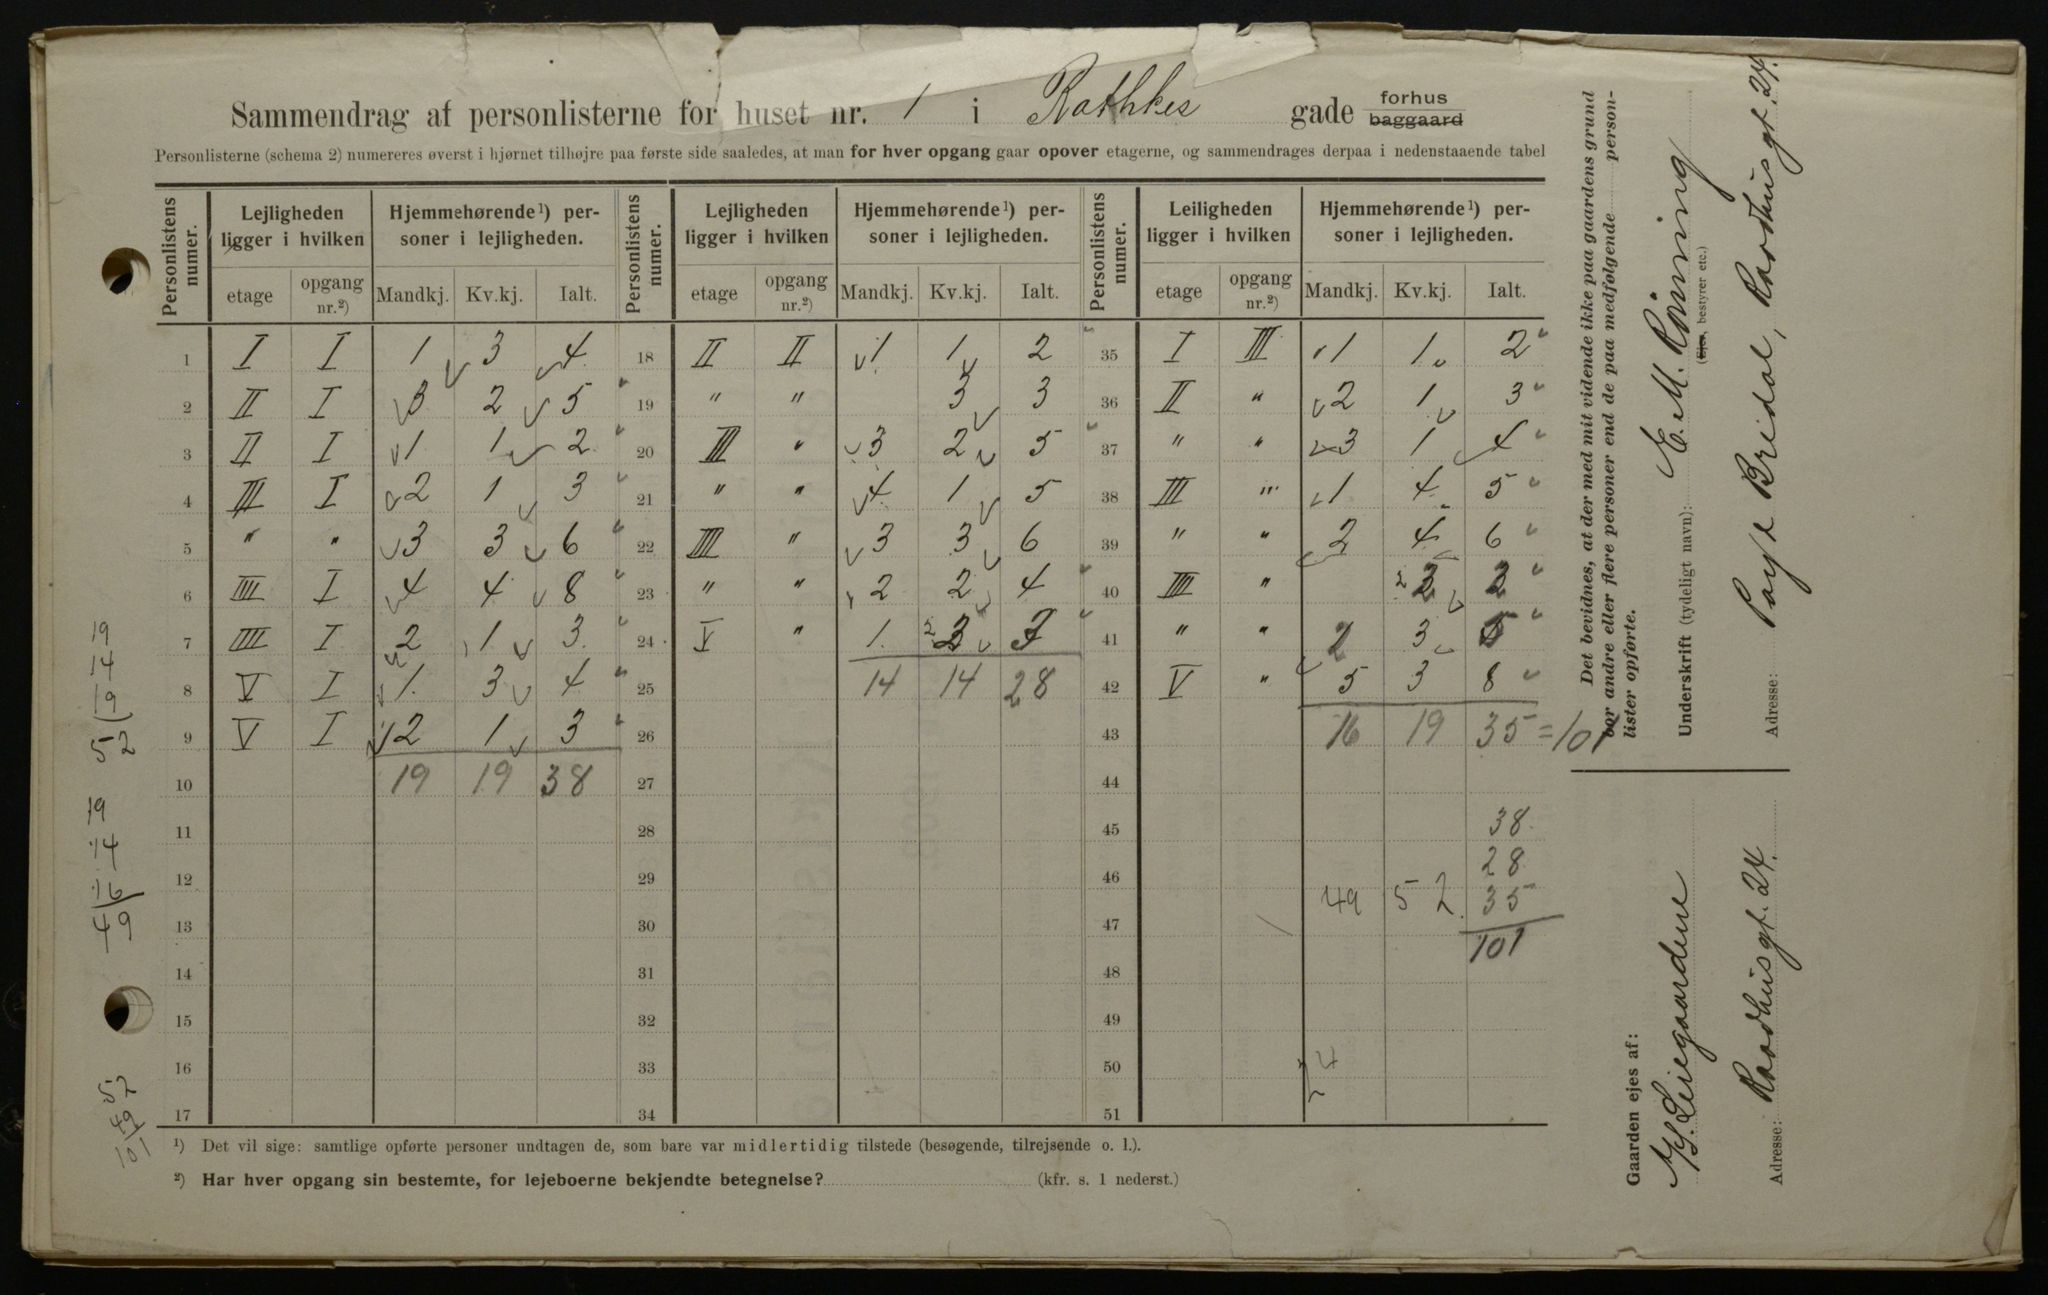 Sammendrag af personlisterne for huset nr. 1 i Rathkes gade forhus baggaard
Personlisterne (schema 2) numereres øverst i hjørnet tilhøjre paa første side saaledes, at man for hver opgang gaar opover etagerne, og sammendrages derpaa i nedenstaaende tabel
Personlistens numer. Lejligheden ligger i hvilken Hjemmehørende ¹) personer i lejligheden. Personlistens numer. Lejligheden ligger i hvilken Hjemmehørende ¹) personer i lejligheden. Personlistens numer. Leiligheden ligger i hvilken Hjemmehørende ¹) personer i lejligheden.
etage opgang nr.²) Mandkj. Kv.kj. Ialt. etage opgang nr.²) Mandkj. Kv.kj. Ialt. etage opgang nr.²) Mandkj. Kv.kj. Ialt.
1 I I 1 3 4 18 II II 1 1 2 35 I III 1 1 2
2 II I 3 2 5 19 " " 3 3 36 II " 2 1 3
3 II I 1 1 2 20 III " 3 2 5 37 " " 3 1 4
4 III I 2 1 3 21 " " 4 1 5 38 III " 1 4 5
5 " " 3 3 6 22 IIII " 3 3 6 39 " " 2 4 6
6 IIII I 4 4 8 23 " " 2 2 4 40 IIII " 2 2
7 IIII I 2 1 3 24 V " 1 2 3 41 " " 2 3 5
8 V I 1 3 4 25 14 14 28 42 V " 5 3 8
9 V I 2 1 3 26 43 16 19 35 = 101
10 19 19 38 27 44
11 28 45 38
28
12 29 46 49 52 35
13 30 47 101
14 31 48
15 32 49
16 33 50 4
17 34 51
¹) Det vil sige: samtlige opførte personer undtagen de, som bare var midlertidig tilstede (besøgende, tilrejsende o. l.).
²) Har hver opgang sin bestemte, for lejeboerne bekjendte betegnelse? (kfr. s. 1 nederst.)
19
14
19
52
19
14
16
49
52
49
101
Det bevidnes, at der med mit vidende ikke paa gaardens grund
bor andre eller flere personer end de paa medfølgende personlister opførte.
Underskrift (tydeligt navn): E. M. Rønning
(Ejer, bestyrer etc.)
Adresse: Bridal, Raadhusgt. 24.
Gaarden ejes af:
A/S. Leiegaardene
Adresse: Raadhusgt. 24.